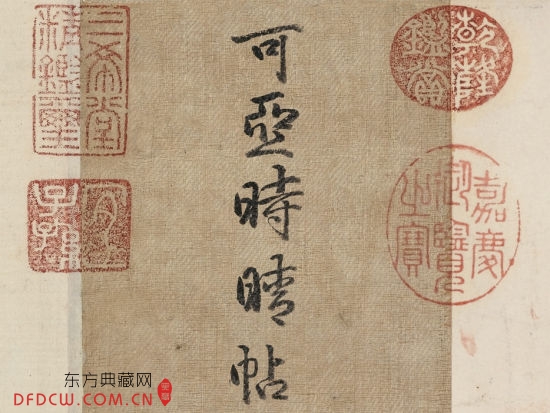 乾隆
鑑賞
嘉慶
御覽
之寶
可亞時晴帖
三希堂
精鑑璽
宜
子孫
东方典藏网
DFDCW.COM.CN